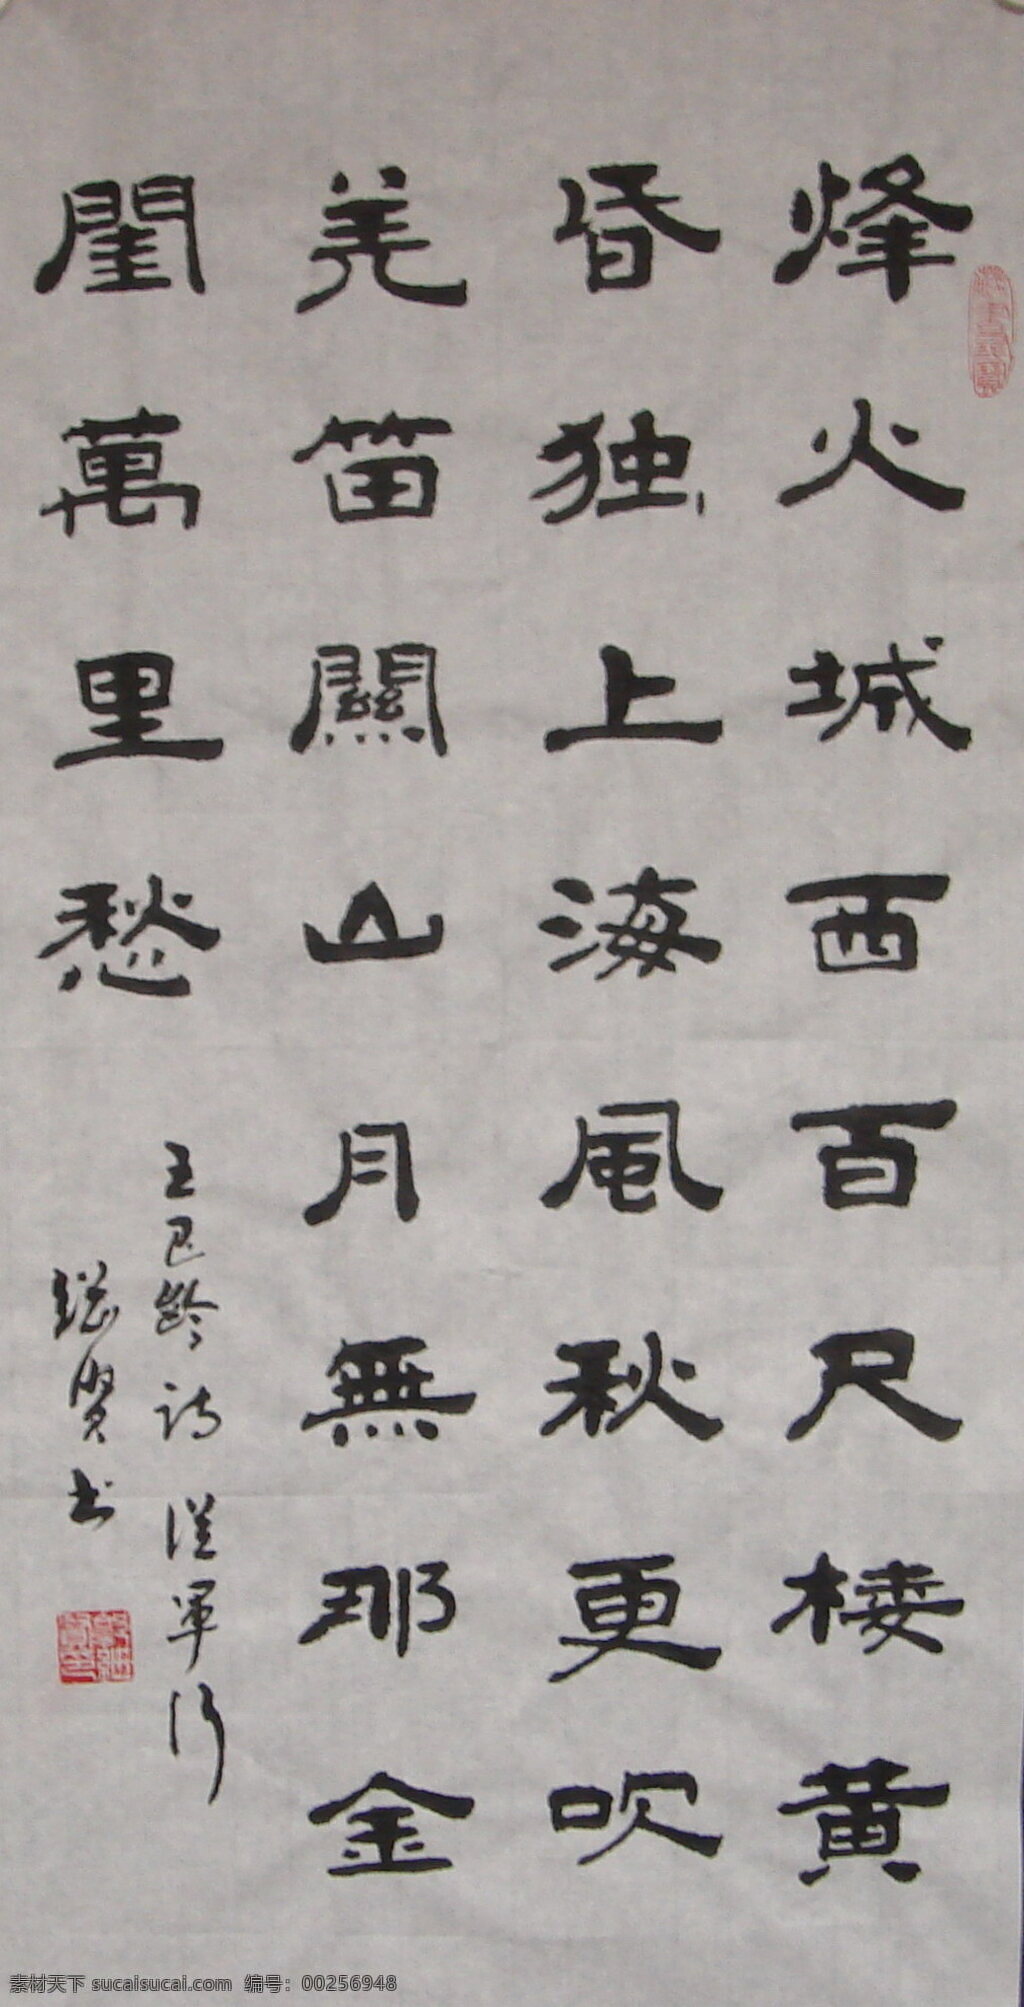 烽火城西百尺楼黄
昏独上海风秋更吹
羌笛關山月無那金
閨萬里愁
王昌龄诗 從軍行
继贤书
素材天下 sucaisucai.com 编号：00256948